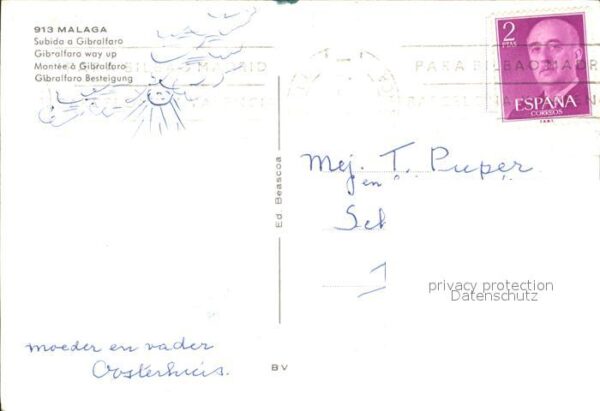 913 MALAGA
Subida a Gibralfaro
Gibralfaro way up
Montée à Gibralfaro
Gibralfaro Besteigung
PARA BILBAO MADRID
2
PTAS
ESPAÑA
CORREOS
Ed. Beascoa
Mej. T. Puper
en
Sch
privacy protection
Datenschutz
moeder en vader
Oosterhuis.
BV